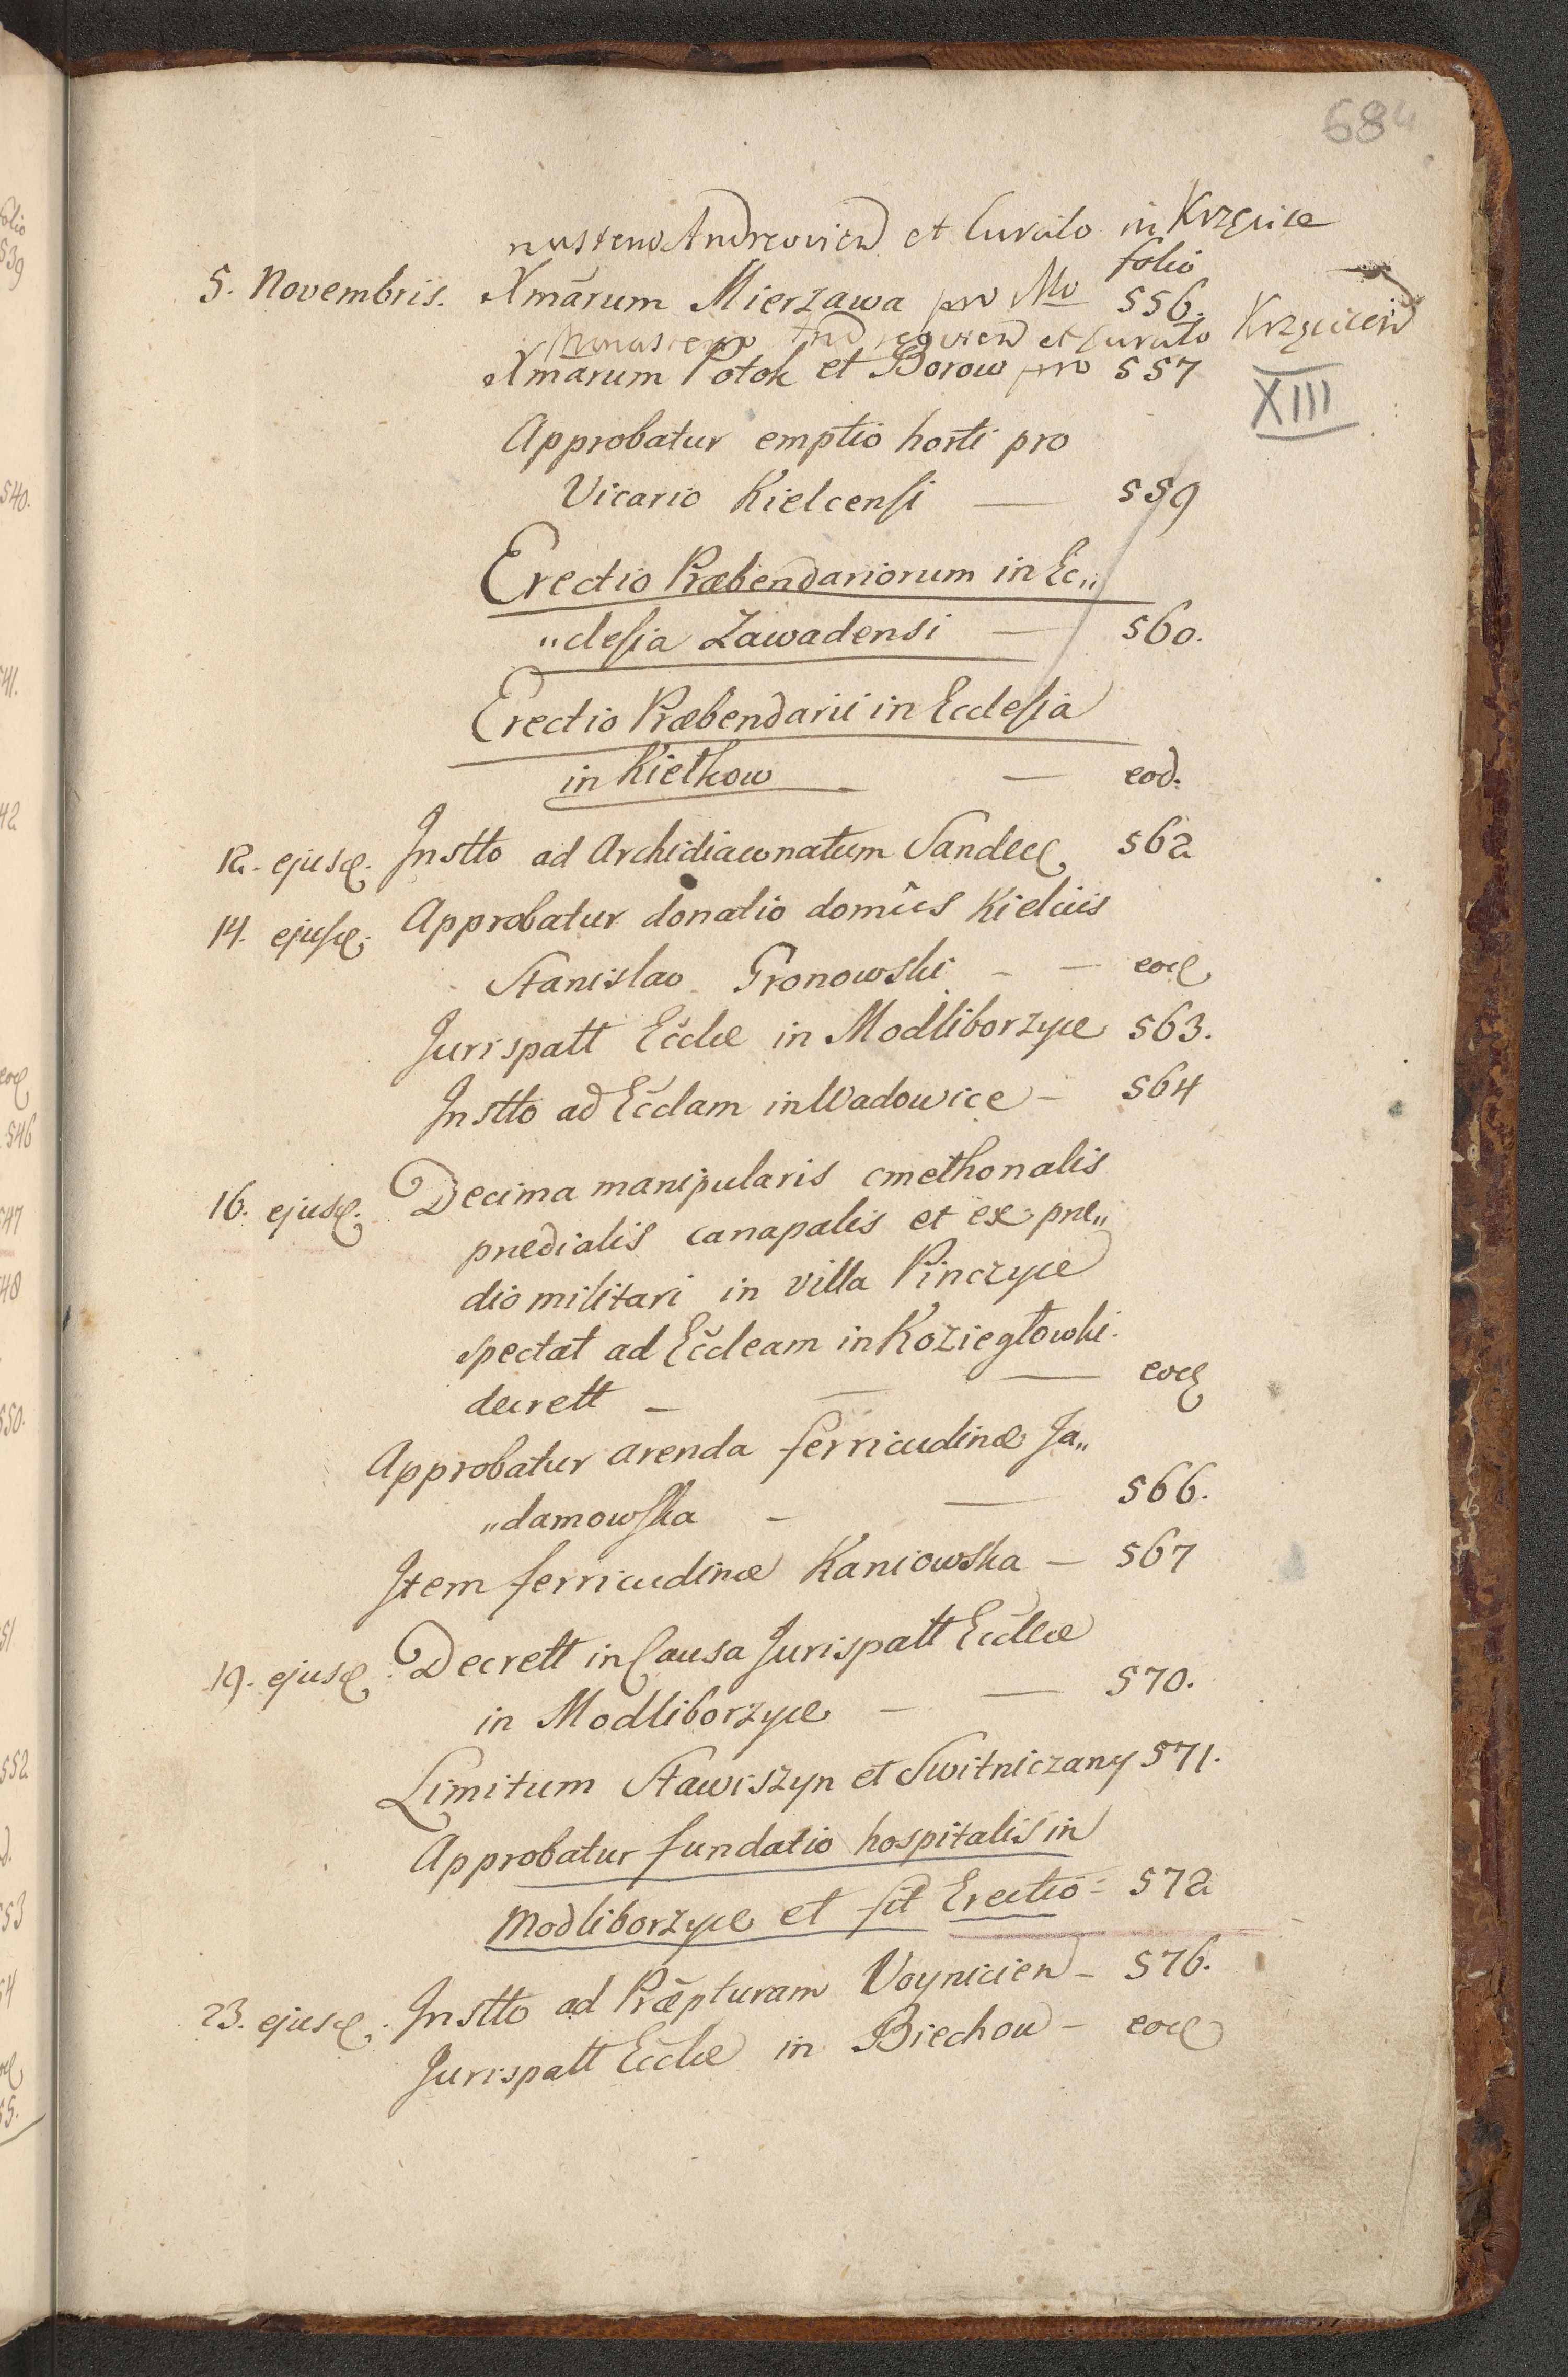 684
nasterio Andreovien et Curato in Krzęcice
folio
5. Novembris. Xmārum Mierzawa pro Mo 556.
Monasterio Andreovien et Curato Krzęcicen
Xmārum Potok et Borow pro 557
XIII
Approbatur emptio horti pro
Vicario Kielcensi — 559
Erectio Præbendariorum in Ec„
„clesia Zawadensi — 560.
Erectio Præbendarii in Ecclesia
in Kiełkow — eod.
12. ejusd. Instto ad Archidiaconatum Sandec 562
14. ejusd. Approbatur donatio domûs Kielciis
Stanislao Gronowski - — eod
Jurispatt Ecclæ in Modliborzyce 563.
Instto ad Ecclam in Wadowice - 564
16. ejusd. Decima manipularis cmethonalis
prædialis canapalis et ex præ„
dio militari in villa Pinczyce
spectat ad Eccleam in Koziegłowki.
decrett - — — eod
Approbatur arenda ferricudinæ Ja„
„damowska - — 566.
Item ferricudinæ Kaniowska — 567
19. ejusd. Decrett in Causa Jurispatt Ecclæ
in Modliborzyce - — 570.
Limitum Stawiszyn et Switniczany 571.
Approbatur fundatio hospitalis in
Modliborzyce et fit Erectio = 572
23. ejusd. Instto ad Præpturam Voynicien - 576.
Jurispatt Ecclæ in Biechow - eod